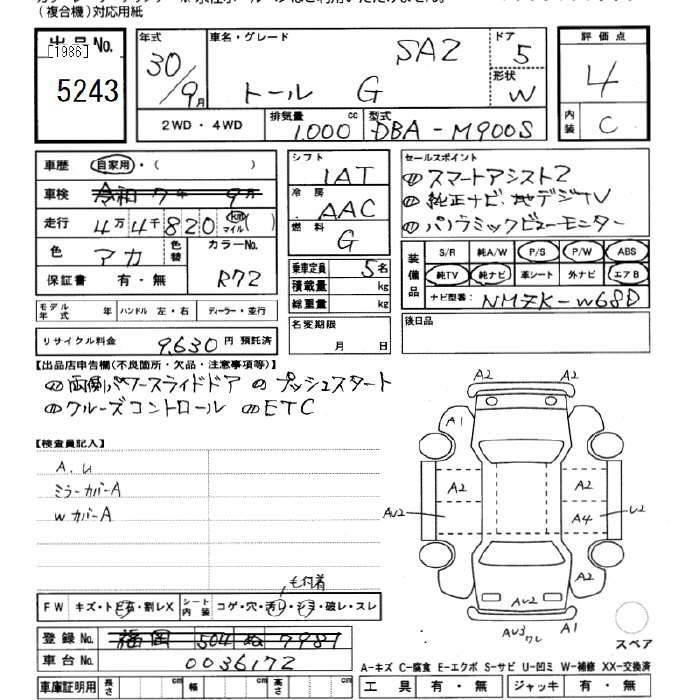 (複合機)対応用紙
出品No.
[1986]
5243
年式 30/9月
車名・グレード SA2
トール G
ドア 5
形状 W
評価点 4
内装 C
2WD・4WD
排気量 1000 cc
型式 DBA-M900S
車歴 自家用・( )
車検 令和7年9月
走行 4万4千820 km マイル( )
色 アカ 色替
カラーNo. R72
保証書 有・無
シフト IAT
冷房 AAC
燃料 G
乗車定員 5名
積載量 kg
総重量 kg
セールスポイント
スマートアシスト2
純正ナビ 地デジTV
パノラミックビューモニター
装備品 S/R 純A/W P/S P/W ABS
純TV 純ナビ 革シート 外ナビ エアB
ナビ型番: NMZK-W68D
モデル年式 年 ハンドル 左・右 ディーラー・並行
名変期限 月 日
後日品
リサイクル料金 9,630円 預託済
【出品店申告欄(不良箇所・欠品・注意事項等)】
両側パワースライドドア プッシュスタート
クルーズコントロール ETC
【検査員記入】
A.U
ミラーカバーA
WカバーA
A2 A2
A1
A2 A2
AU2 A4 U2
AU2
AU3 ワレ A1
スペア
も付着
FW キズ・トビ石・割レX シート内装 コゲ・穴・汚レ・シミ・破レ・スレ
登録No. 福岡 504 ぬ 7981
車台No. 0036172
A-キズ C-腐食 E-エクボ S-サビ U-凹ミ W-補修 XX-交換済
車庫証明用 長さ cm 幅 cm 高さ cm
工具 有・無 ジャッキ 有・無